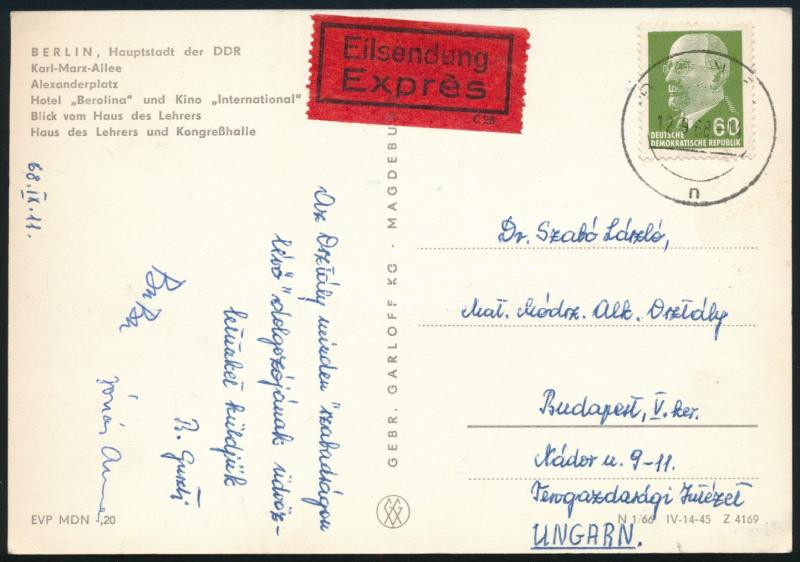 BERLIN, Hauptstadt der DDR
Karl-Marx-Allee
Alexanderplatz
Hotel „Berolina" und Kino „International"
Blick vom Haus des Lehrers
Haus des Lehrers und Kongreßhalle
Eilsendung
Exprès
C 28
60
DEUTSCHE
DEMOKRATISCHE REPUBLIK
n
68.IX.11.
Az Osztály minden "szabadságon
lévő" dolgozójának üdvöz-
letünket küldjük
B. Guszti
GEBR. GARLOFF KG · MAGDEBUR
Dr. Szabó László,
Mat. Módsz. Alk. Osztály
Budapest, V. ker.
Nádor u. 9-11.
Tervgazdasági Intézet
UNGARN.
EVP MDN -,20
N 1/66 IV-14-45 Z 4169